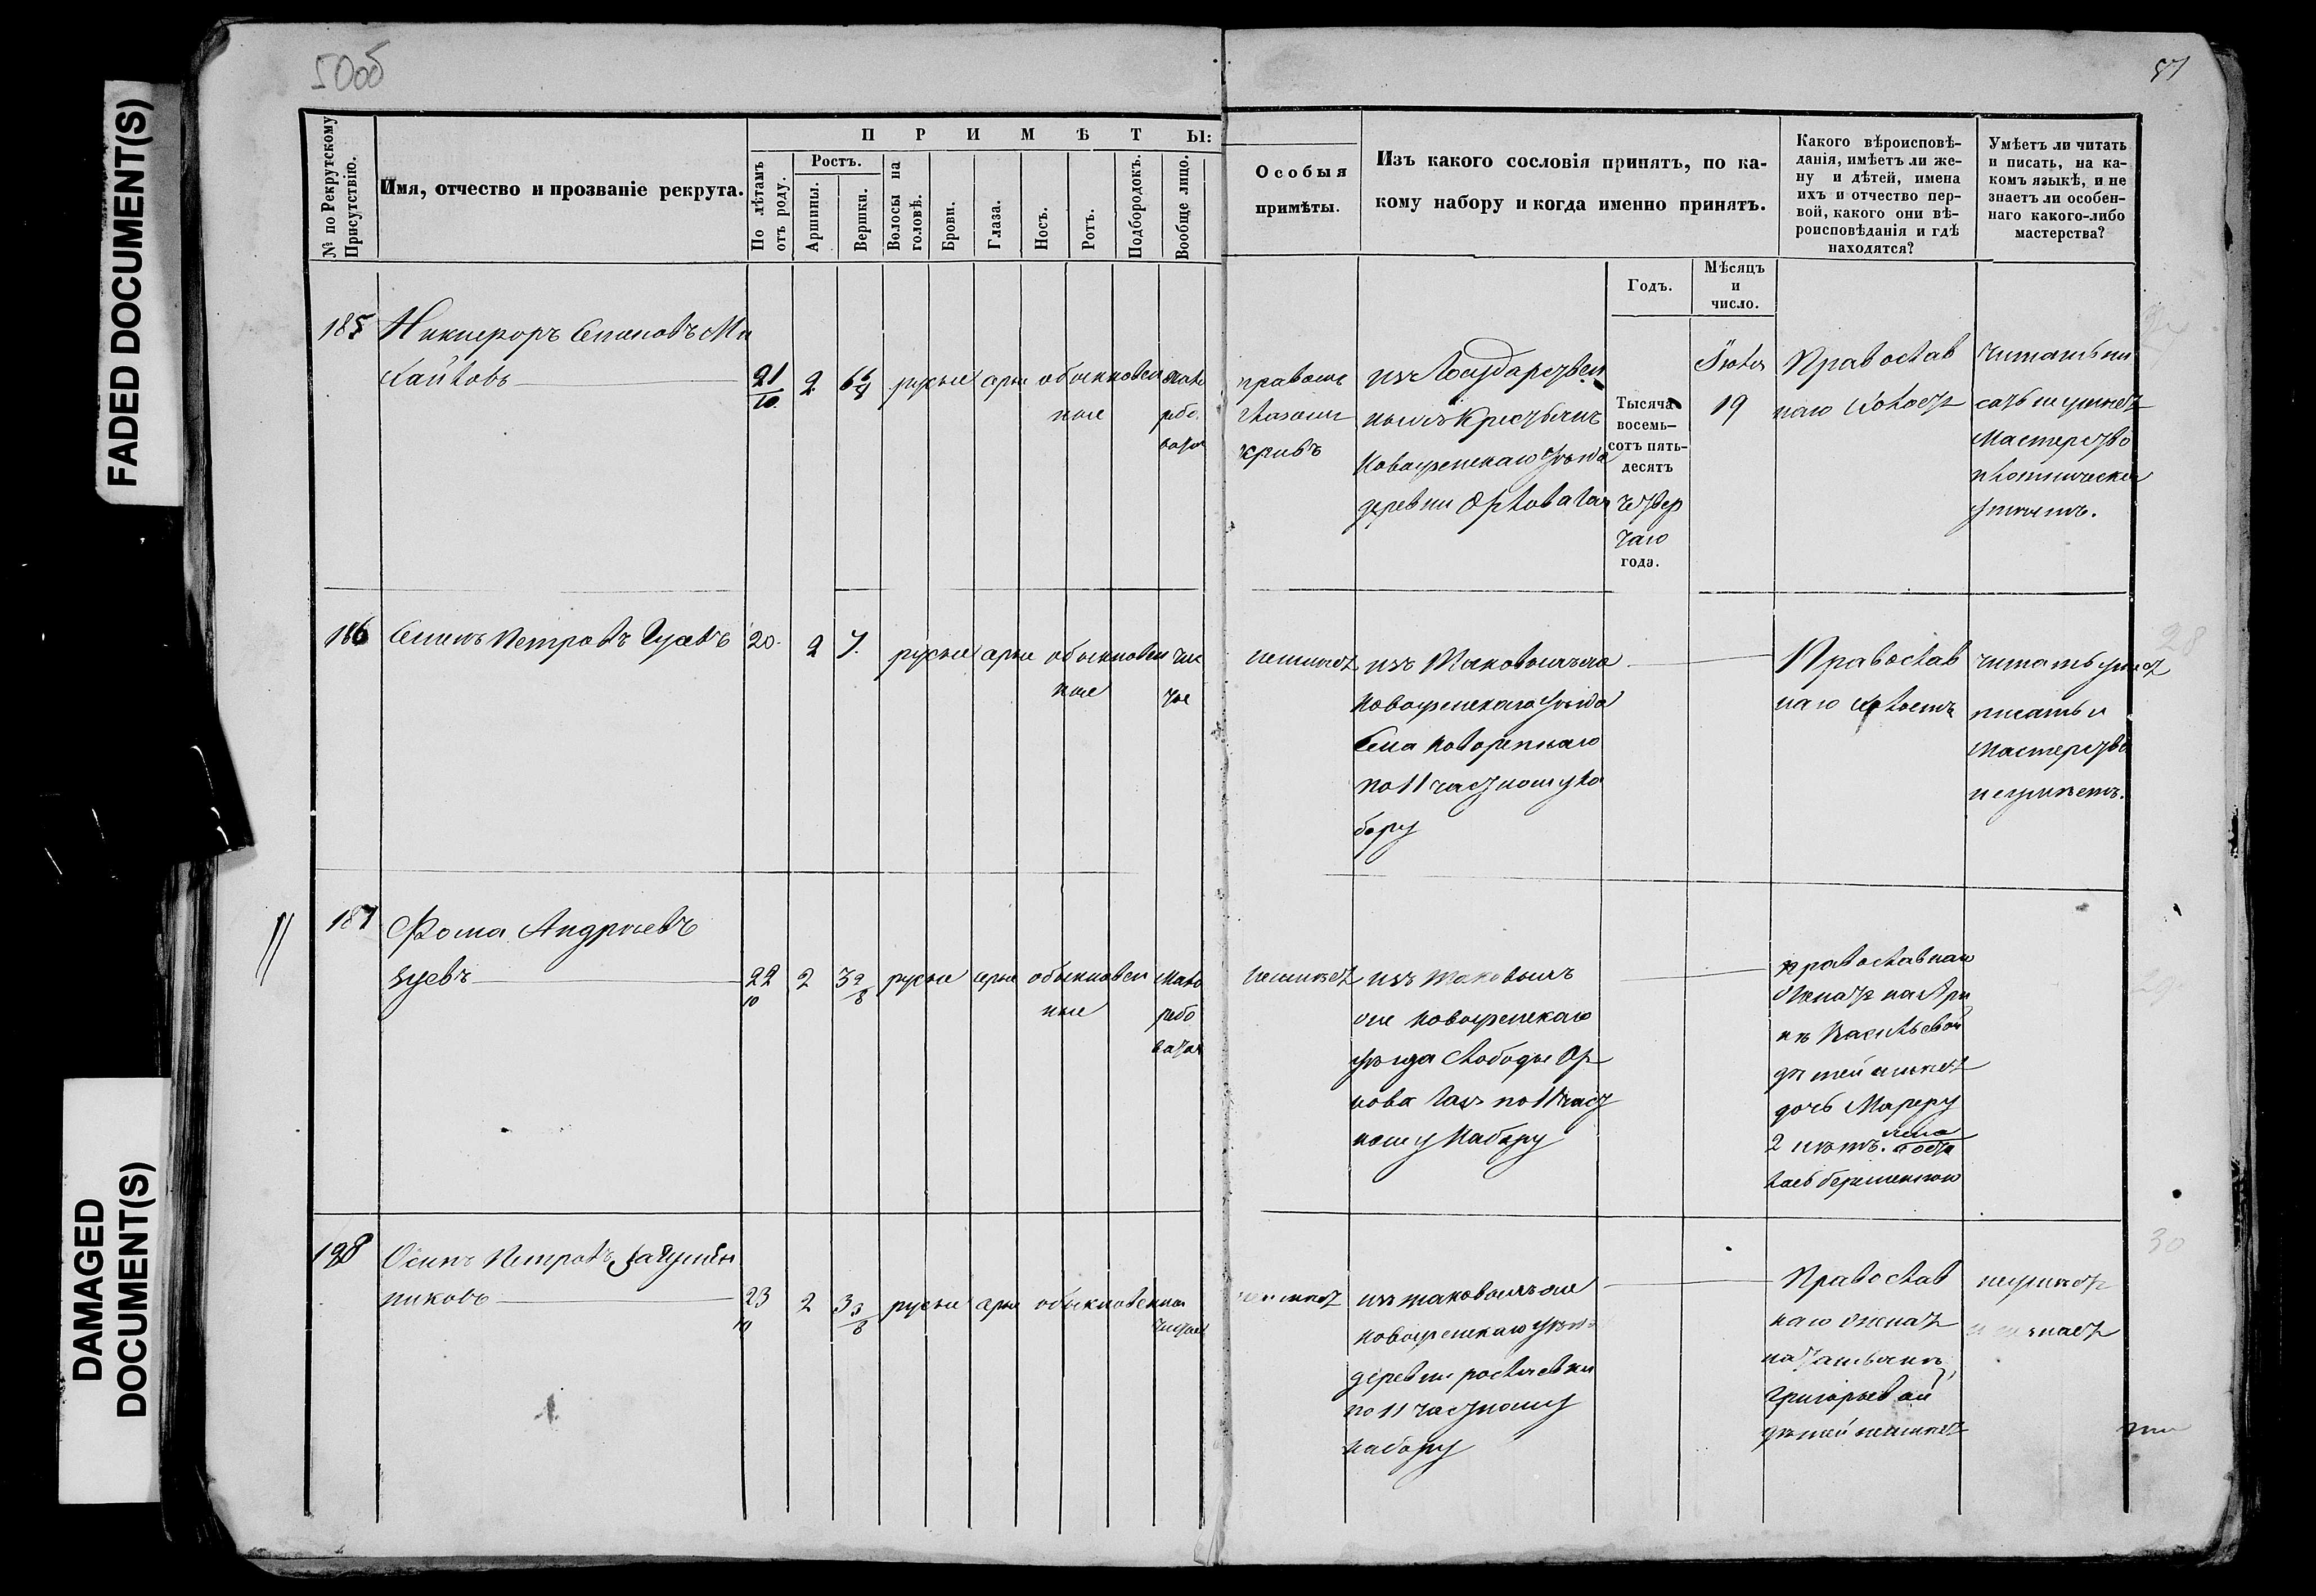 FADED DOCUMENT(S)
DAMAGED
DOCUMENT(S)
50об
51
№ по Рекрутскому
Присутствію.
Имя, отчество и прозваніе рекрута.
ПРИМѢТЫ:
По лѣтамъ
отъ роду.
Ростъ.
Аршины.
Вершки.
Волосы на
головѣ.
Брови.
Глаза.
Носъ.
Ротъ.
Подбородокъ.
Вообще лицо.
Особыя
примѣты.
Изъ какого сословія принятъ, по ка-
кому набору и когда именно принятъ.
Годъ.
Мѣсяцъ
и
число.
Какого вѣроисповѣ-
данія, имѣетъ ли же-
ну и дѣтей, имена
ихъ и отчество пер-
вой, какого они вѣ-
роисповѣданія и гдѣ
находятся?
Умѣетъ ли читать
и писать, на ка-
комъ языкѣ, и не
знаетъ ли особен-
наго какого-либо
мастерства?
185
Никифоръ Степановъ Ми
хайловъ
21
10
2
6 6/8
русые
серые
обыкновен
ные
мало
рябо
ватое
правымъ
глазомъ
кривъ
изъ Государствен
ныхъ Крестьянъ
Новоузенскаго уѣзда
деревни Орлова Гая
Тысяча
восемь-
сотъ пять-
десятъ
четвер
таго
года.
Іюля
19
Православ
наго холостъ
читать пи
сать неумѣетъ
Мастерство
плотническое
умѣетъ.
186
Семенъ Петровъ Гусевъ
20
2
7
русые
серые
обыкновен
ные
чис
тое
неимѣетъ
изъ Таковыхъ же
Новоузенскаго уѣзда
Села Новорепнаго
по 11 частному на
бору
Православ
наго холостъ
читать умѣетъ
писать и
Мастерство
неумѣетъ.
28
187
Фома Андреевъ
Зуевъ
22
10
2
3 2/8
русые
серые
обыкновен
ные
мало
рябо
ватое
неимѣетъ
изъ таковыхъ
же Новоузенскаго
уѣзда Слободы Ор
лова Гая по 11 част
ному Набору
православнаго
женатъ на Ири
нѣ Васильевой
дѣтей имѣетъ
дочь Марфу
2 лѣтъ. жена оста
лась беременною
29
188
Осипъ Петровъ
никовъ
23
10
2
3 3/8
русые
серые
обыкновенное
чистое
неимѣетъ
изъ таковыхъ же
Новоузенскаго уѣзда
деревни
по 11 частному
набору
Православ
наго женатъ
на Татьянѣ
Григорьевой
дѣтей неимѣетъ
неумѣетъ
и незнаетъ
30